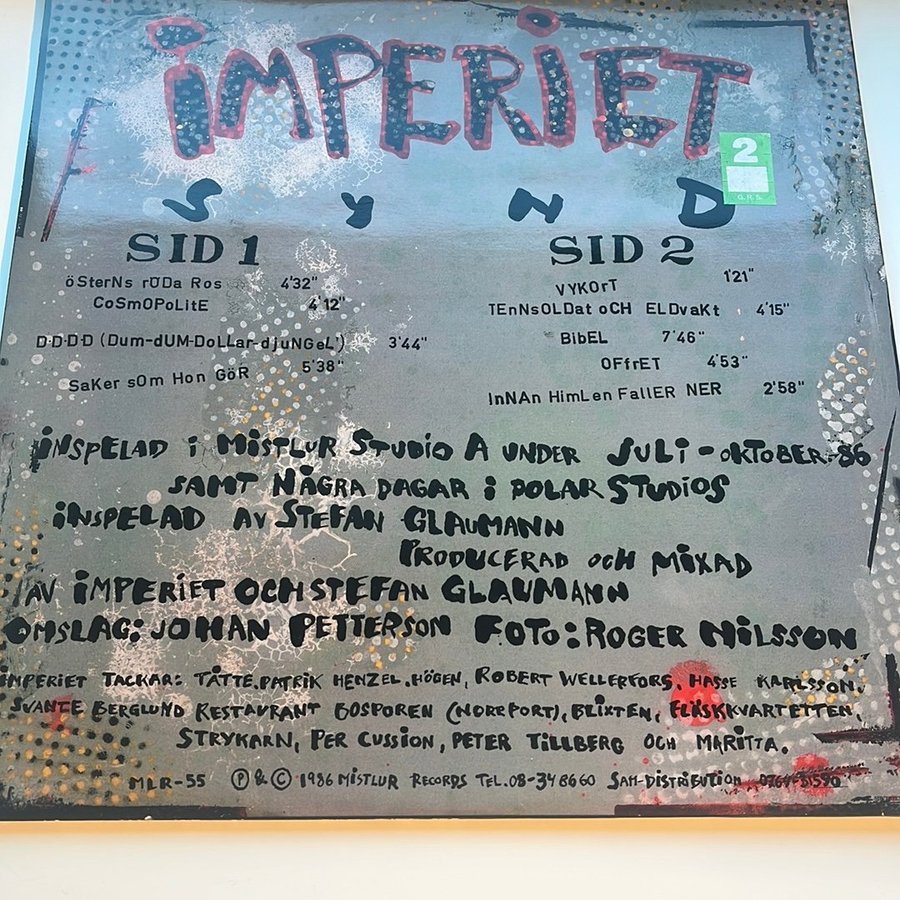 iMPERiET
2
G.R.S.
S Y N D
SID 1
öSterNs rÖDa Ros 4'32"
CoSmOPoLitE 4'12"
D-D-D-D (Dum-dUM-DoLLar-djuNGeL') 3'44"
SaKer sOm Hon GöR 5'38"
SID 2
VYKOrT 1'21"
TEnNsOLDat oCH ELDvaKt 4'15"
BibEL 7'46"
OFfrET 4'53"
InNAn HimLen FallER NER 2'58"
iNSPELAD i MiSTLUR STUDiO A UNDER JULi - OKTOBER-86
SAMT NÅGRA DAGAR i POLAR STUDiOS
iNSPELAD AV STEFAN GLAUMANN
PRODUCERAD OCH MiXAD
AV iMPERiET OCH STEFAN GLAUMANN
OMSLAG: JOHAN PETTERSON FOTO: ROGER NiLSSON
iMPERIET TACKAR: TÄTTE, PATRiK HENZEL, HÖGEN, ROBERT WELLERFORS, HASSE KARLSSON,
SVANTE BERGLUND RESTAURANT BOSPOREN (NORRPORT), BLIXTEN, FLÄSKKVARTETTEN
STRYKARN, PER CUSSION, PETER TILLBERG OCH MARITTA.
MLR-55 Ⓟ & © 1986 MISTLUR RECORDS TEL. 08-34 86 60 SAM-DISTRIBUTION 0764-81590